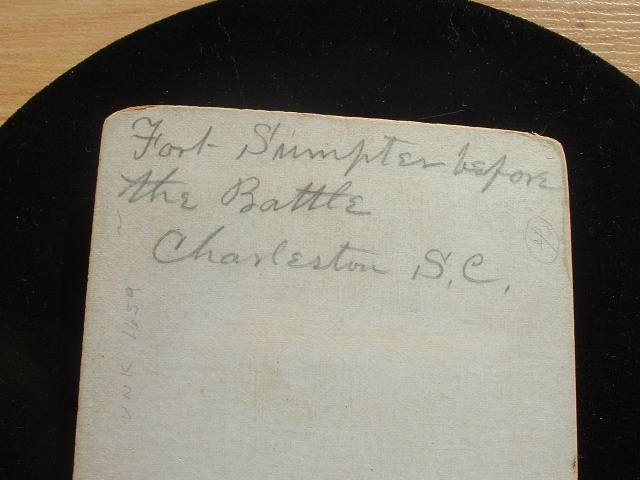 Fort Sumpter before
the Battle
Charleston S.C.
4
UNK 1659